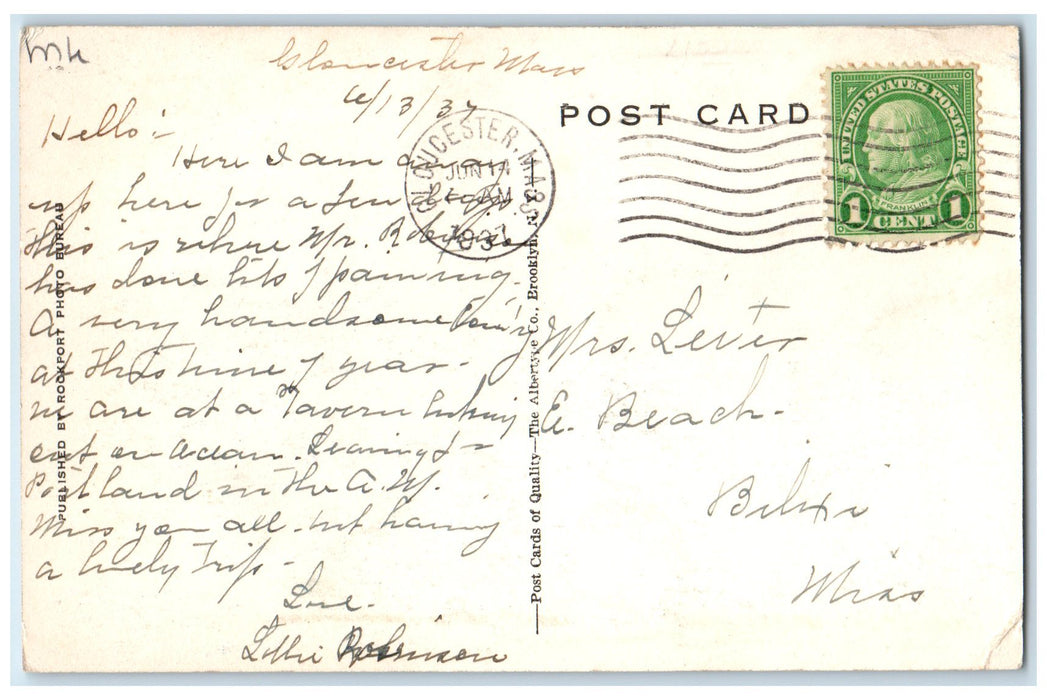 Mh
Gloucester Mass
6/13/37
Hello:-
Here I am away
up here for a few days
This is where Mr. Robinson
has done lots of painting.
A very handsome
at this time of year-
we are at a Tavern looking
out on ocean. Leaving for
Portland in the A.M.
Miss you all- but having
a lovely Trip-
Love-
Robinson
PUBLISHED BY ROCKPORT PHOTO BUREAU
GLOUCESTER, MASS.
JUN 14
AM
1937
—Post Cards of Quality—The Albertype Co., Brooklyn, N.Y.—
POST CARD
UNITED STATES POSTAGE
FRANKLIN
1 CENT 1
Mrs.
E. Beach-
Biloxi
Miss